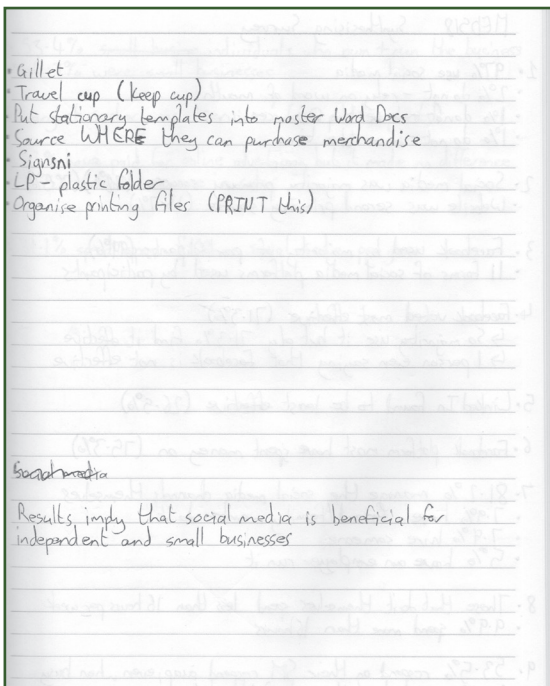 · Gillet
· Travel cup (Keep cup)
· Put stationary templates into master Word Docs
· Source WHERE they can purchase merchandise
· Signsni
· LP - plastic folder
· Organise printing files (PRINT this)
Social media
Results imply that social media is beneficial for
independent and small businesses